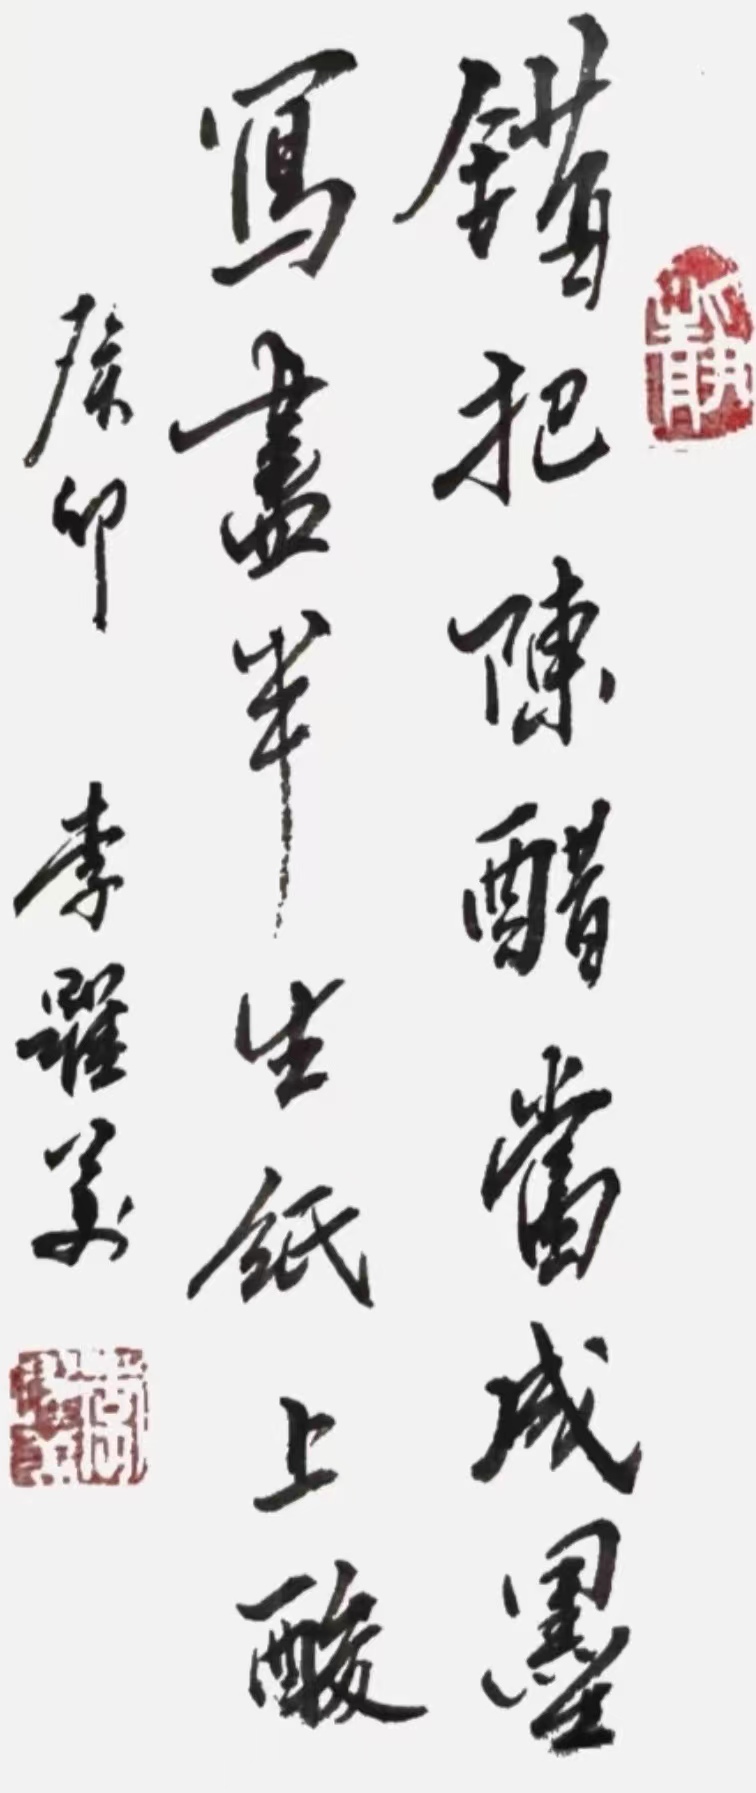 靜
錯把陳醋當成墨
寫盡半生紙上酸
癸卯 李躍